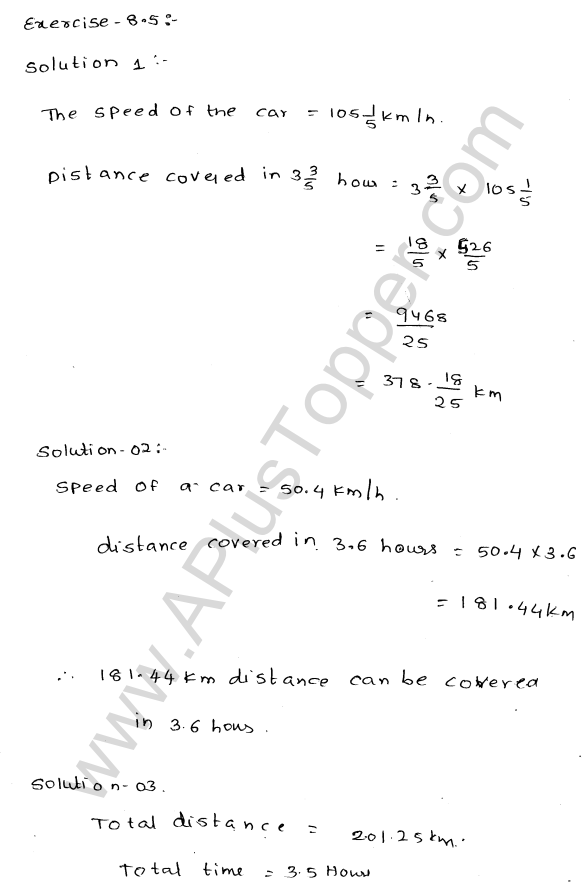 Exercise-8.5:-
Solution 1:-
The Speed of the car = 105 1/5 km/h.
Distance covered in 3 3/5 hour = 3 3/5 × 105 1/5
= 18/5 × 526/5
= 9468/25
= 378 . 18/25 km
Solution-02:-
Speed of a car = 50.4 km/h.
distance covered in 3.6 hours = 50.4 × 3.6
= 181.44km
∴ 181.44 km distance can be covered
in 3.6 hous.
Solution-03.
Total distance = 201.25km.
Total time = 3.5 Hour
www.APlusTopper.com